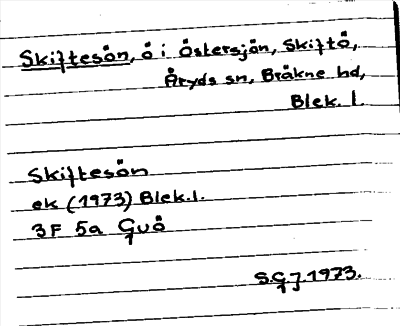 Skiftesön, ö i Östersjön, Skiftö,
Åryds sn, Bräkne hd,
Blek. l.
Skiftesön
ek (1973) Blek.l.
3F 5a Guö
S.G.J. 1973.